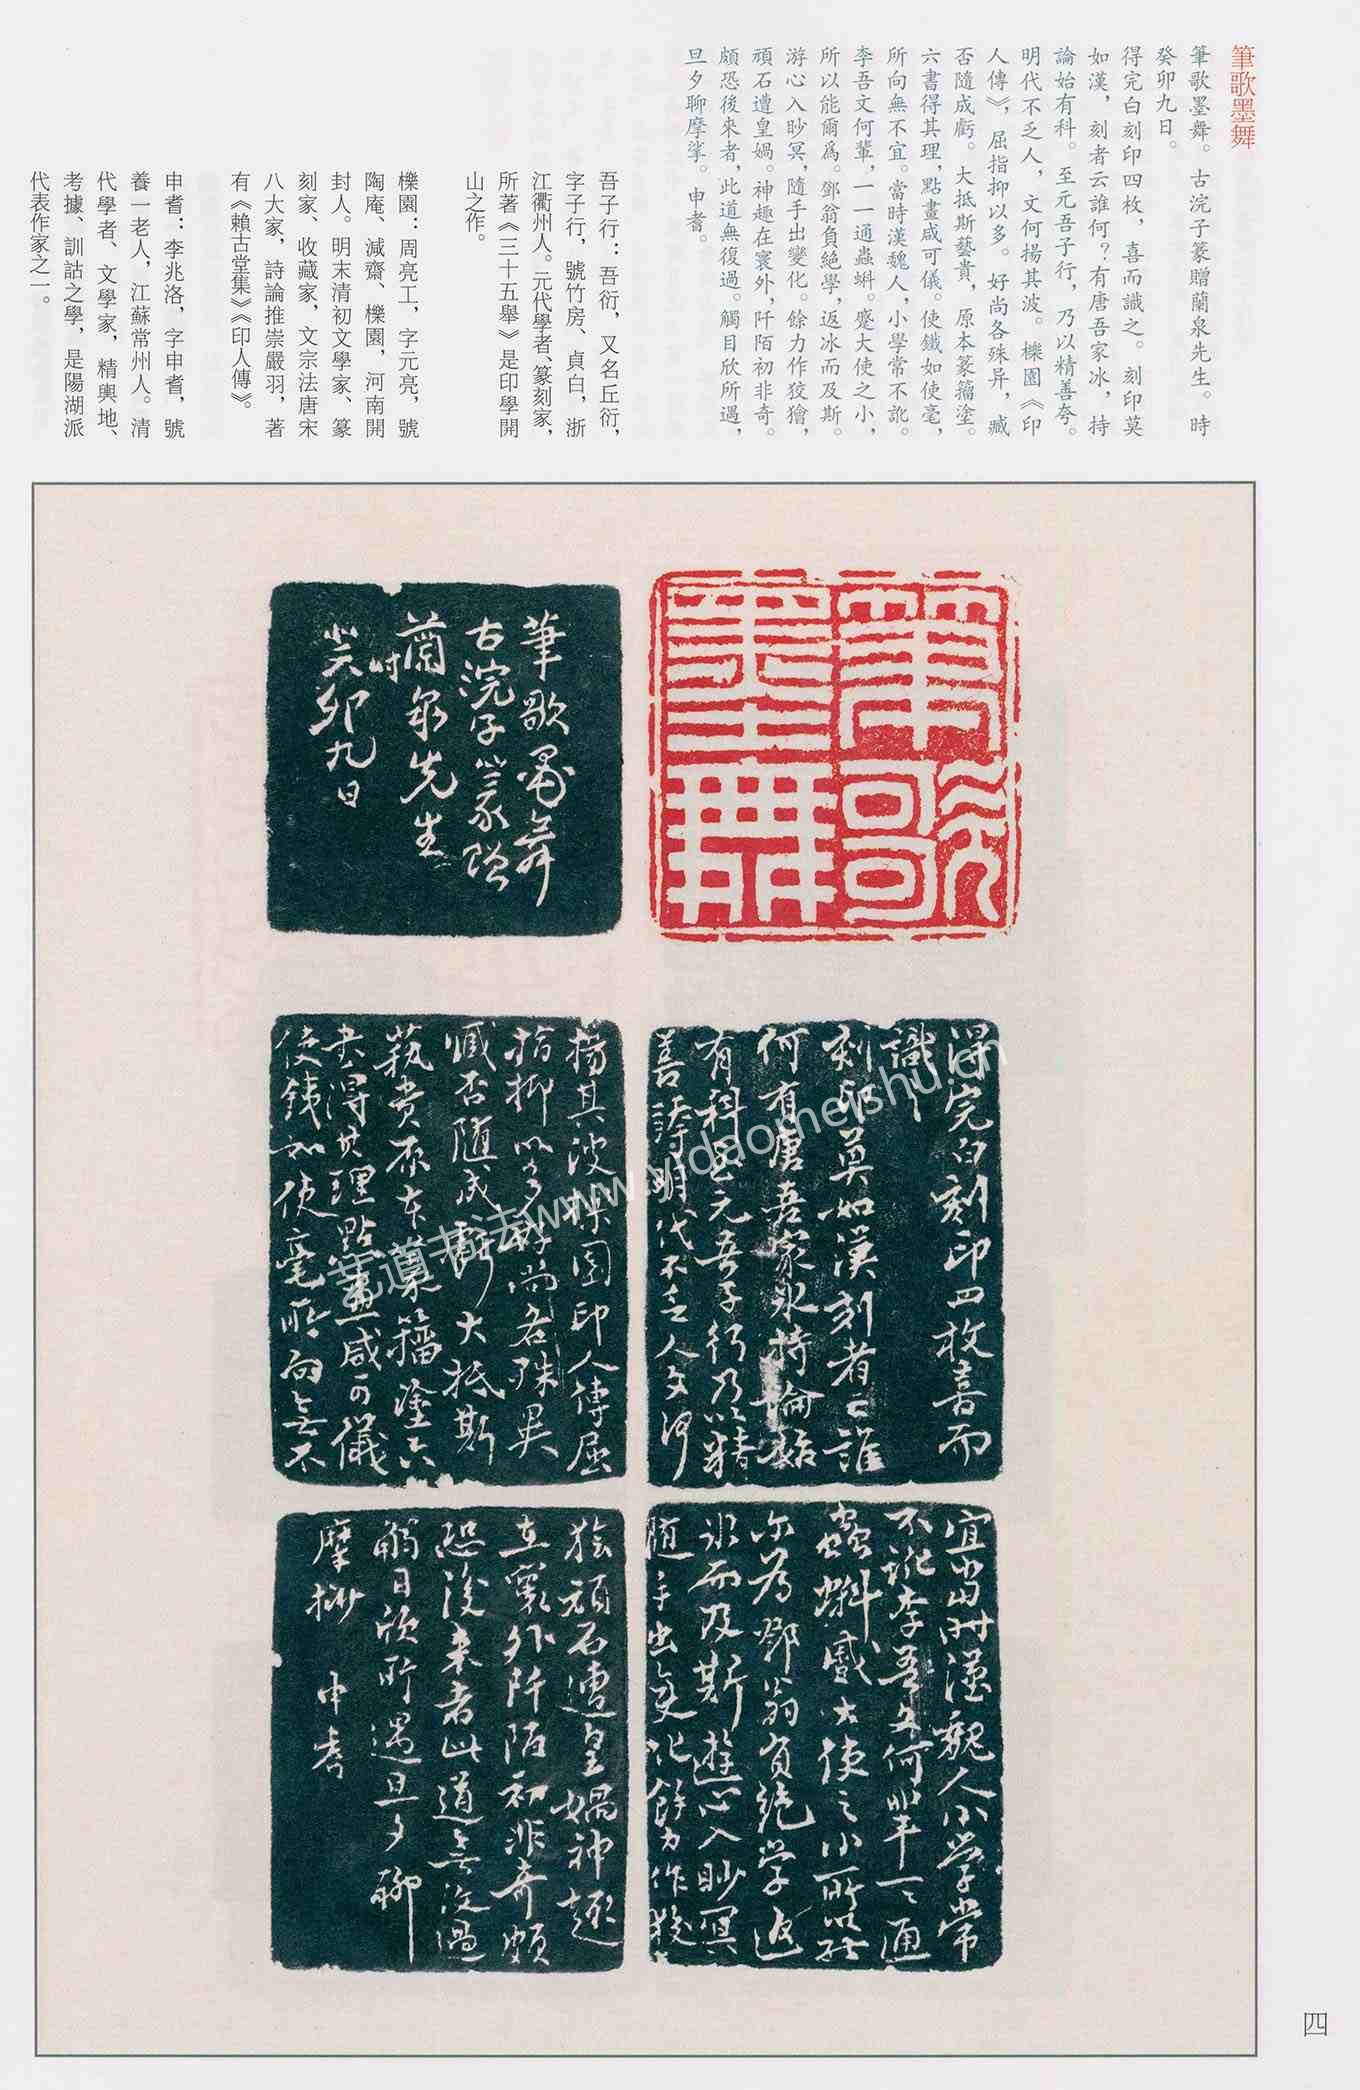 筆歌墨舞
筆歌墨舞。古浣子篆贈蘭泉先生。時
癸卯九日。
得完白刻印四枚，喜而識之。刻印莫
如漢，刻者云誰何？有唐吾家冰，持
論始有科。至元吾子行，乃以精善夸。
明代不乏人，文何揚其波。櫟園《印
人傳》，屈指抑以多。好尚各殊异，臧
否隨成虧。大抵斯藝貴，原本篆籀塗。
六書得其理，點畫咸可儀。使鐵如使毫，
所向無不宜。當時漢魏人，小學常不訛。
李吾文何輩，一一通蟲蝌。蹙大使之小，
所以能爾爲。鄧翁負絶學，返冰而及斯。
游心入眇冥，隨手出變化。餘力作狡獪，
頑石遭皇媧。神趣在寰外，阡陌初非奇。
頗恐後來者，此道無復過。觸目欣所遇，
旦夕聊摩挲。申耆。
吾子行：吾衍，又名丘衍，
字子行，號竹房、貞白，浙
江衢州人。元代學者、篆刻家，
所著《三十五舉》是印學開
山之作。
櫟園：周亮工，字元亮，號
陶庵、減齋、櫟園，河南開
封人。明末清初文學家、篆
刻家、收藏家，文宗法唐宋
八大家，詩論推崇嚴羽，著
有《賴古堂集》《印人傳》。
申耆：李兆洛，字申耆，號
養一老人，江蘇常州人。清
代學者、文學家，精輿地、
考據、訓詁之學，是陽湖派
代表作家之一。
筆歌墨舞
筆歌墨舞
古浣子篆贈
蘭泉先生
時
癸卯九日
得完白刻印四枚喜而
識之
刻印莫如漢刻者云誰
何有唐吾家冰持論始
有科至元吾子行乃以精
善誇明代不乏人文何
揚其波櫟園印人傳屈
指抑以多好尚各殊異
臧否隨成虧大抵斯
藝貴原本篆籀塗六
書得其理點畫咸可儀
使鐵如使毫所向無不
宜當時漢魏人小學常
不訛李吾文何輩一一通
蟲蝌蹙大使之小所以能
尔為鄧翁負絶學返
冰而及斯遊心入眇冥
隨手出變化餘力作狡
獪頑石遭皇媧神趣
在寰外阡陌初非奇頗
恐後來者此道無復過
觸目欣所遇旦夕聊
摩挱 申耆
艺道书法www.yidaomeishu.cn
四